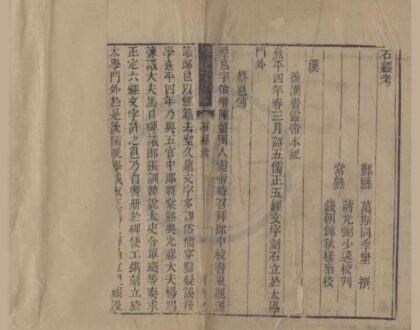 石經考
鄞縣 萬斯同季壄 撰
常熟 蔣光弼少逸校刊
錢朝錦秋樣參校
漢
後漢書靈帝本紀
熹平四年春三月詔五儒正五經文字刻石立於太學
門外
蔡邕傳
蔡邕字伯喈陳留圉人靈帝時召拜郎中校書東觀遷
石經考
議郎邕以經籍去聖久遠文字多謬俗儒穿鑿疑誤後
學熹平四年乃與五官中郎將堂谿典光祿大夫楊賜
諫議大夫馬日磾議郎張訓韓說太史令單颺等奏求
正定六經文字許之邕乃自書冊於碑使工鐫刻立於
太學門外於是後儒晚學咸取正